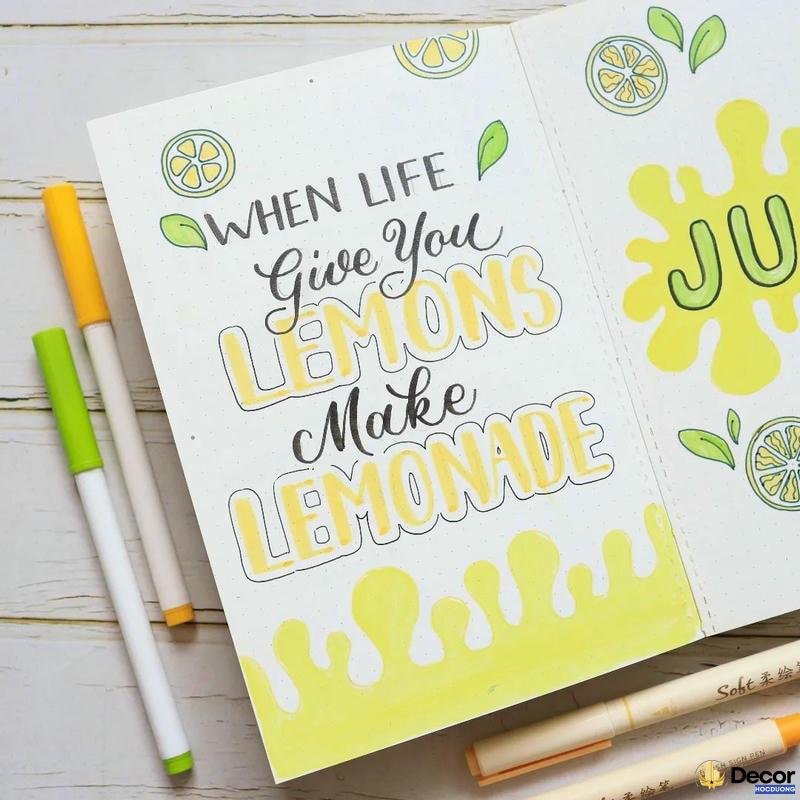 WHEN LIFE
Give You
LEMONS
Make
LEMONADE
JU
Soft 柔绘笔
SIGN PEN
柔绘笔
Decor
HOCDUONG